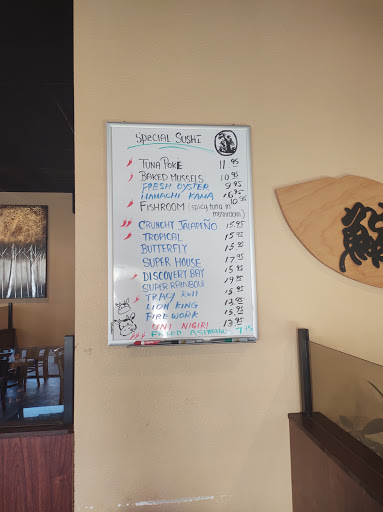 SPECIAL SUSHI
TUNA POKE 11.95
BAKED MUSSELS 10.95
FRESH OYSTER 9.95
HAMACHI KAMA 16.95
FISHROOM (spicy tuna n mushroom) 10.95
CRUNCHY JALAPEÑO 15.95
TROPICAL 15.95
BUTTERFLY 15.95
SUPER HOUSE 17.95
DISCOVERY BAY 15.95
SUPER RAINBOW 19.95
TRACY Roll 15.95
LION KING 13.95
FIRE WORK 15.95
UNI NIGIRI 13.95
FRIED 7.95